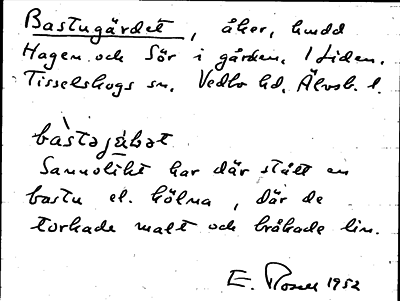 Bastugärdet, åker, hmdd
Hagen och Sör i gården, Liden.
Tisselskogs sn. Vedbo hd. Älvsb. l.
bàstəjáḷət
Sannolikt har där stått en
bastu el. kölna, där de
torkade malt och bråkade lin.
E. Rosell 1952